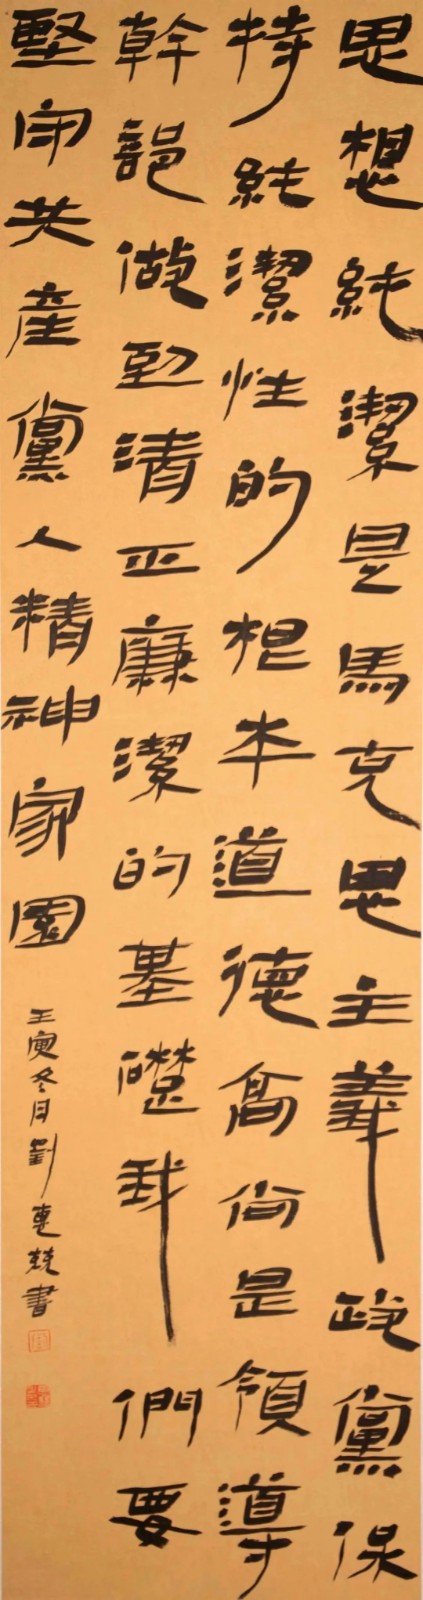 思想純潔是馬克思主義政黨保
持純潔性的根本道德高尚是領導
幹部做到清正廉潔的基礎我們要
堅守共產黨人精神家園
壬寅冬月劉惠兢書